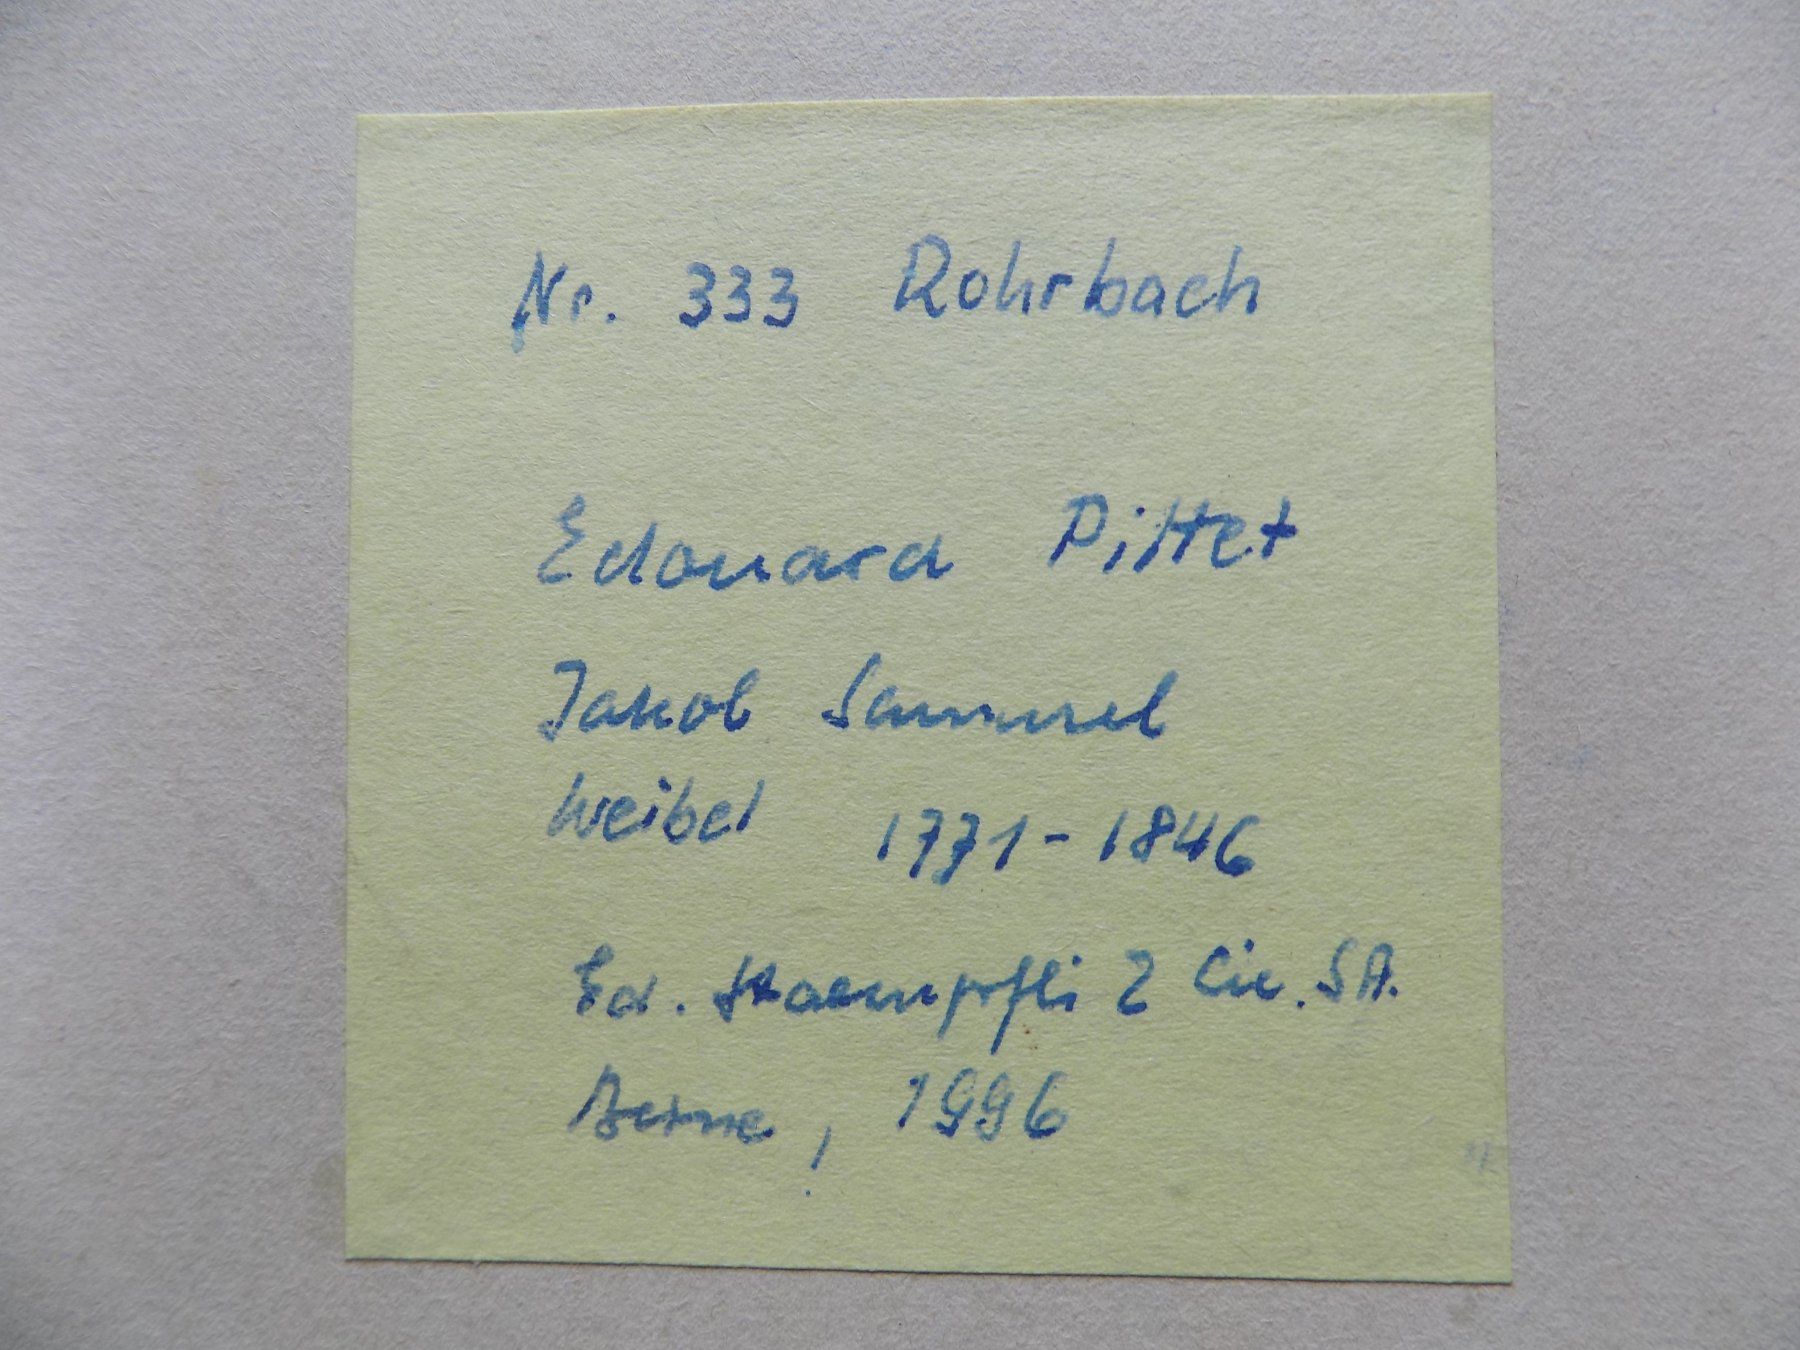 Nr. 333 Rohrbach
Edouard Pittet
Jakob Samuel
Weibel 1771-1846
Ed. Staempfli & Cie. SA.
Berne, 1996